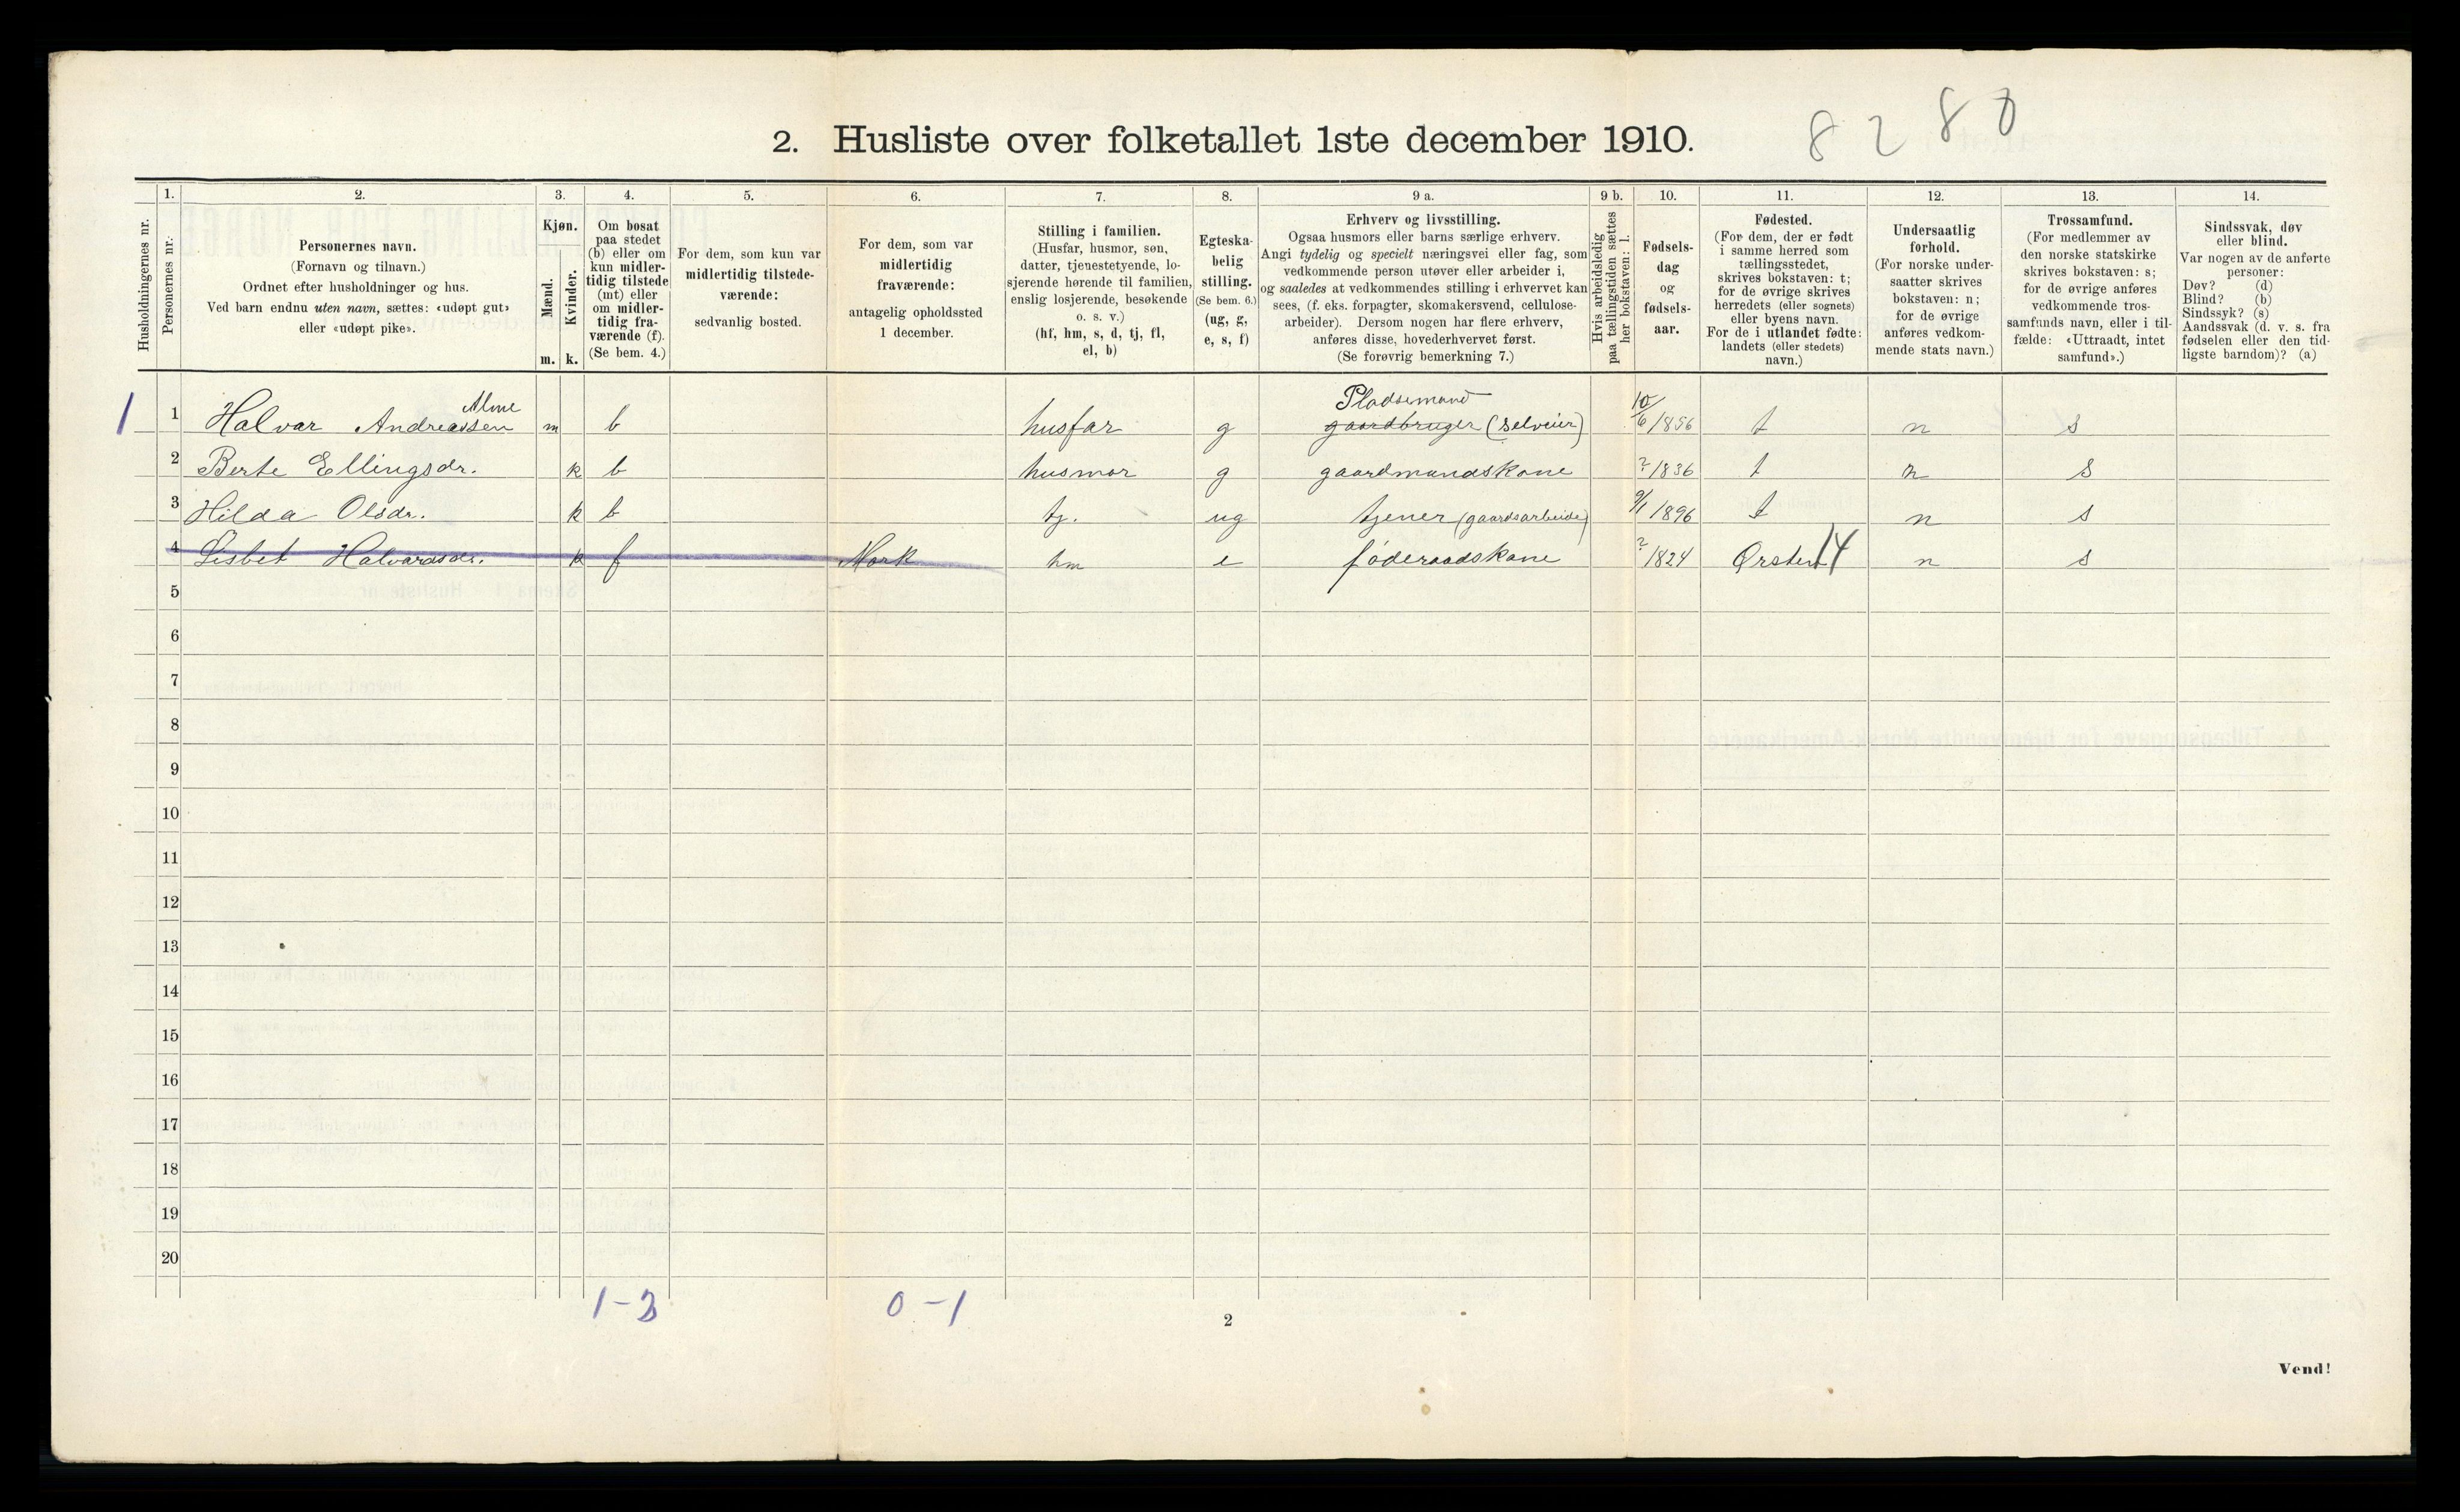 8 2 8 0
2. Husliste over folketallet 1ste december 1910.
Husholdningernes nr.
1.
Personernes nr.
2.
Personernes navn.
(Fornavn og tilnavn.)
Ordnet efter husholdninger og hus.
Ved barn endnu uten navn, sættes: «udøpt gut»
eller «udøpt pike».
3.
Kjøn.
Mænd.
Kvinder.
m. k.
4.
Om bosat
paa stedet
(b) eller om
kun midler-
tidig tilstede
(mt) eller
om midler-
tidig fra-
værende (f).
(Se bem. 4.)
5.
For dem, som kun var
midlertidig tilstede-
værende:
sedvanlig bosted.
6.
For dem, som var
midlertidig
fraværende:
antagelig opholdssted
1 december.
7.
Stilling i familien.
(Husfar, husmor, søn,
datter, tjenestetyende, lo-
sjerende hørende til familien,
enslig losjerende, besøkende
o. s. v.)
(hf, hm, s, d, tj, fl,
el, b)
8.
Egteska-
belig
stilling.
(Se bem. 6.)
(ug, g,
e, s, f)
9 a.
Erhverv og livsstilling.
Ogsaa husmors eller barns særlige erhverv.
Angi tydelig og specielt næringsvei eller fag, som
vedkommende person utøver eller arbeider i,
og saaledes at vedkommendes stilling i erhvervet kan
sees, (f. eks. forpagter, skomakersvend, cellulose-
arbeider). Dersom nogen har flere erhverv,
anføres disse, hovederhvervet først.
(Se forøvrig bemerkning 7.)
9 b.
Hvis arbeidsledig
paa tællingstiden sættes
her bokstaven: l.
10.
Fødsels-
dag
og
fødsels-
aar.
11.
Fødested.
(For dem, der er født
i samme herred som
tællingsstedet,
skrives bokstaven: t;
for de øvrige skrives
herredets (eller sognets)
eller byens navn.
For de i utlandet fødte:
landets (eller stedets)
navn.)
12.
Undersaatlig
forhold.
(For norske under-
saatter skrives
bokstaven: n;
for de øvrige
anføres vedkom-
mende stats navn.)
13.
Trossamfund.
(For medlemmer av
den norske statskirke
skrives bokstaven: s;
for de øvrige anføres
vedkommende tros-
samfunds navn, eller i til-
fælde: «Uttraadt, intet
samfund».)
14.
Sindssvak, døv
eller blind.
Var nogen av de anførte
personer:
Døv? (d)
Blind? (b)
Sindssyk? (s)
Aandssvak (d. v. s. fra
fødselen eller den tid-
ligste barndom)? (a)
Alme Pladsemand
1 1 Halvar Andreassen m b husfar g gaardbruger (selveier) 10/6 /1856 t n s
2 Berte Ellingsdr. k b husmor g gaardmandskone ? /1836 t n s
3 Hilda Olsdr. k b tj. ug tjener (gaardsarbeide) 9/1 /1896 t n s
4 Lisbet Halvardsdr. k f Mork hm e føderaadskone ? /1824 Ørsten 14 n s
5
6
7
8
9
10
11
12
13
14
15
16
17
18
19
20
1 - 3 0 - 1
2
Vend!